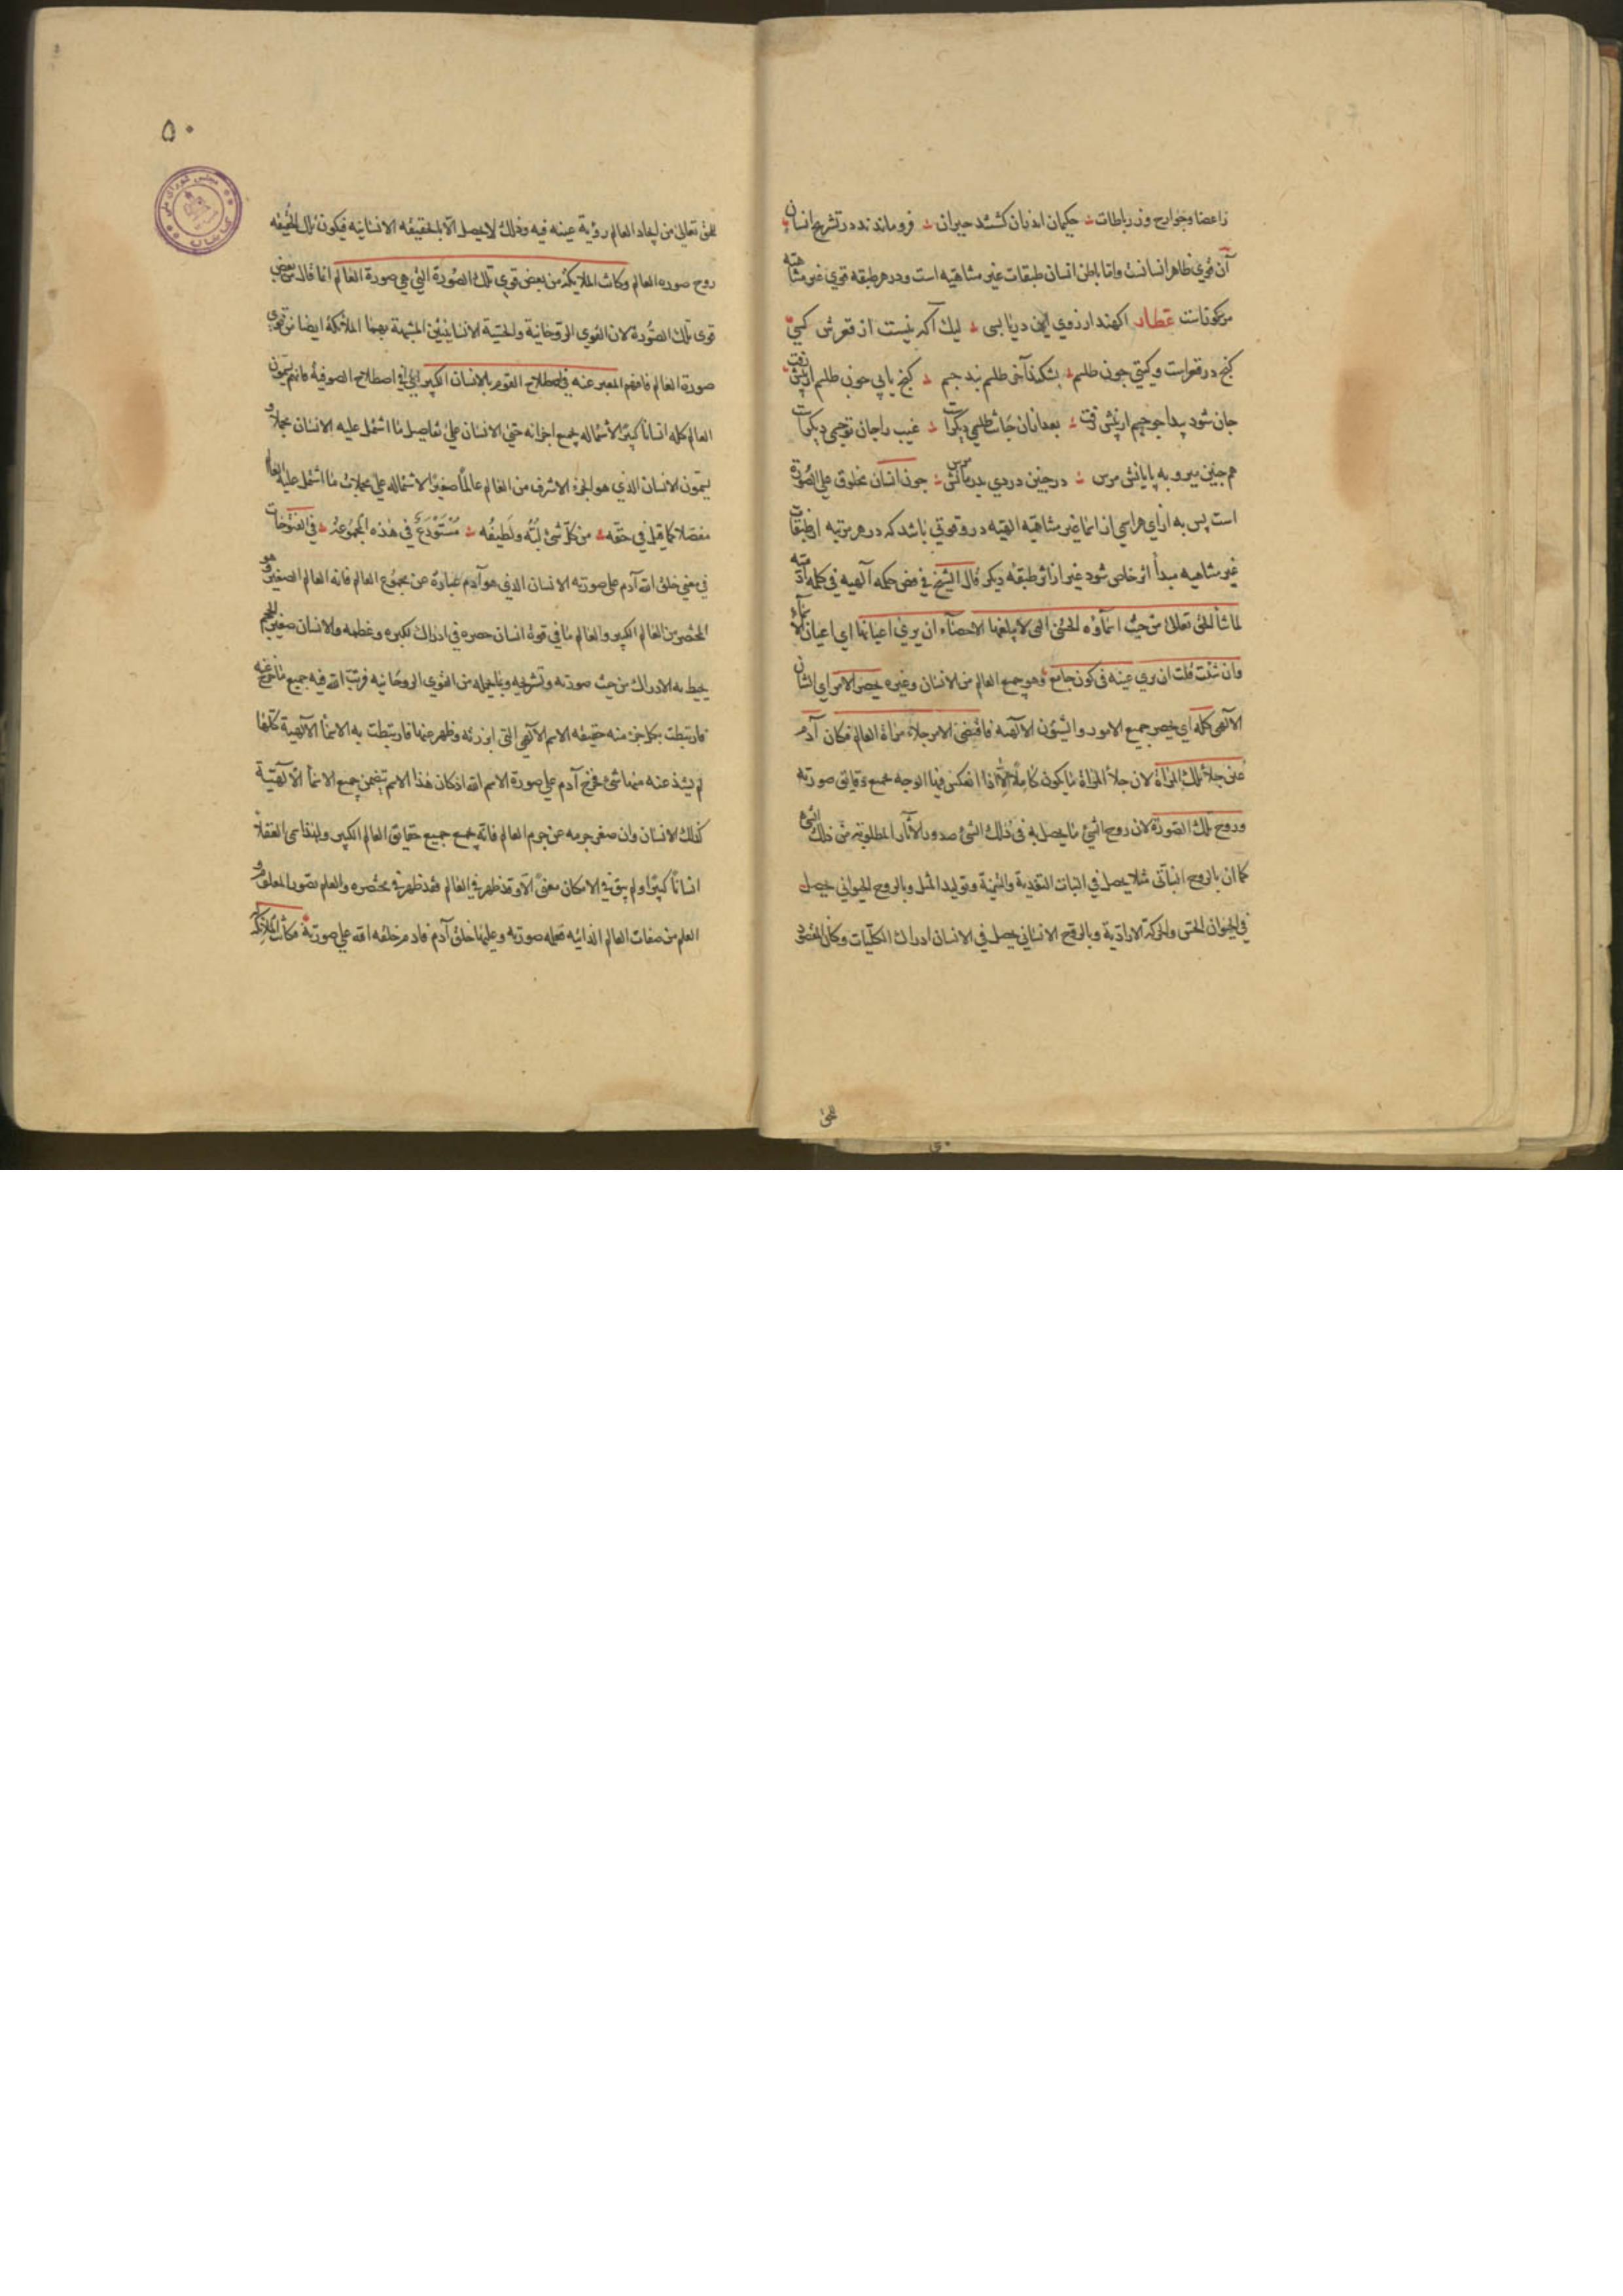 زاعضا و جوارح وز رباطات حکیمان اندران کشتند حیران فرو ماندند در تشریح انسان
آن قوی ظاهر انسانست واما باطن انسان طبقات غیر متناهیه است ودر هر طبقه قوی غیر متناهیه
مرکوناست عطار اکهند ارزوی این دریا بسی لیک آکه نیست از قعرش کسی
کنج در قعراست و کیتی جون طلسم بشکند آخر طلسم بند جسم کنج یابی جون طلسم از پیش رفت
جان شود پیدا جو جسم از پیش رفت بعد ازان جانت طلسمی دیکرست غیب را جان تو جسمی دیکرست
هم جنین میرو به پایانش مرس در جنین دردی بدرمانش مرس جون انسان مخلوق علی الصورة
است پس به ازای هر اسمی از اسما غیر متناهیه الهیه درو قوتی باشد که در هر مرتبه از طبقات
غیر متناهیه مبدأ اثر خاص شود غیر از اثر طبقه دیکر قال الشیخ فی فص حکمه آلهیه فی کلمه آدمیه
لما شا الحق تعالی من حیث اسمآؤه الحسنی التی لا یبلغها الاحصآء ان یری اعیانها ای اعیان الاسمآء
وان شئت قلت ان یری عینه فی کون جامع وهو جمیع العالم من الانسان وغیره یحصر الامر ای الشان
الآلهی کله ای یحصر جمیع الامور والشؤن الآلهیه فاقتضی الامر جلاء مرآة العالم فکان آدم
عین جلاء تلک المرآة لان جلاء المرآة ما یکون کاملا الا اذا انعکس فیها الوجه بجمیع دقایق صورته
وروح تلک الصورة لان روح الشیء ما یحصل به فی ذلک الشیء صدور الآثار المطلوبة من ذلک الشیء
کما ان بالروح النباتی مثلا یحصل فی النبات التغذیة والتنمیة وتولید المثل وبالروح الحیوانی یحصل
فی الحیوان الحس والحرکة الارادیة وبالروح الانسانی یحصل فی الانسان ادراک الکلیات وکان المقصود
للحق
۵۰
للحق تعالی من ایجاد العالم رؤیة عینه فیه وذلک لا یحصل الا بالحقیقه الانسانیه فیکون تلک الحقیقه
روح صوره العالم وکانت الملایکه من بعض قوی تلک الصورة التی هی صورة العالم انما قال من بعض
قوی تلک الصورة لان القوی الروحانیة والحسیة الانسانیتین المشبهة بهما الملائکة ایضا من قوی
صورة العالم فافهم المعبر عنه فی اصطلاح القوم بالانسان الکبیر ای فی اصطلاح الصوفیه فانهم یسمون
العالم کله انسانا کبیرا لاشتماله بجمیع اجزائه حتی الانسان علی تفاصیل ما اشتمل علیه الانسان مجملا و
یسمون الانسان الذی هو الجزء الاشرف من العالم عالما صغیرا لاشتماله علی مجملات ما اشتمل علیه العالم
مفصلا کما قیل فی حقه من کل شیء لبه ولطیفه مستودع فی هذه المجموعه فی الفتوحات
فی معنی خلق الله آدم علی صورته الانسان الذی هو آدم عبارة عن مجموع العالم فانه العالم الصغیر وهو
المختصر من العالم الکبیر والعالم ما فی قوة انسان حصره فی ادراک لکبره وعظمه والانسان صغیر الحجم
یحیط به الادراک من حیث صورته وتشریحه وبما یحمله من القوی الروحانیه فرتب الله فیه جمیع ما خرج عنه
فارتبطت بکل جزء منه حقیقه الاسم الآلهی التی ابرزته وظهر عنها فارتبطت به الاسمآ الآلهیة کلها
لم یشذ عنه منها شیء فخرج آدم علی صورة الاسم الله اذ کان هذا الاسم یتضمن جمیع الاسمآ الآلهیة
کذلک الانسان وان صغر جرمه عن جرم العالم فانه یجمع جمیع حقایق العالم الکبیر ولهذا سمی العقلا
انسانا کبیرا ولم یبق فی الامکان معنی الا وقد ظهر فی العالم فقد ظهر فی مختصره والعلم تصور المعلوم و
العلم من صفات العالم الذاتیه فعلمه صورته وعلیها خلق آدم فآدم خلقه الله علی صورته فکانت الملائکه